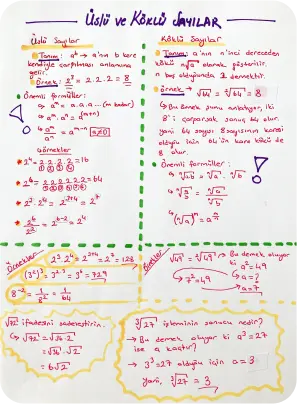 ÜSLÜ ve KÖKLÜ SAYILAR
Üslü Sayılar
Tanım: aᵇ → a'nın b kere
kendiyle çarpılması anlamına
gelir.
Örnek: 2³ = 2.2.2 = 8
Önemli formüller:
→ aᵐ = a.a.a... (m kadar)
→ aᵐ.aⁿ = a⁽ᵐ⁺ⁿ⁾
→ aᵐ/aⁿ = aᵐ⁻ⁿ a≠0
Örnekler
2⁴ = 2.2.2.2 = 16
① ② ③ ④
2⁶ = 2.2.2.2.2.2 = 64
① ② ③ ④ ⑤ ⑥
2³.2⁴ = 2³⁺⁴ = 2⁷
2⁶/2² = 2⁶⁻² = 2⁴
Köklü Sayılar
Tanım: a'nın n'inci dereceden
kökü ⁿ√a olarak gösterilir.
n boş olduğunda 2 demektir.
örnek → √64 = ²√64 = 8
↳ Bu demek sunu anlatıyor, iki
8'i çarparsak sonuç 64 olur.
yani 64 sayısı 8 sayısının karesi
olduğu için 64'ün kare kökü de
8 olur.
Önemli formüller:
ⁿ√a.b = ⁿ√a . ⁿ√b
ⁿ√a/b = ⁿ√a / ⁿ√b
(ⁿ√a)ᵐ = a^(m/n)
Örnekler
2³.2⁴ = 2³⁺⁴ = 2⁷ = 128
(3²)³ = 3²·³ = 3⁶ = 729
8⁻² = 1/8² = 1/64
Örnekler
√49 = ²√49 → Bu demek oluyor
ki a² = 49
→ 7² = 49
a = ?
a = 7
√72 ifadesini sadeleştirin.
↳ √72 = √36.2
= √36.√2
= 6√2
³√27 işleminin sonucu nedir?
→ Bu demek oluyor ki a³ = 27
ise a kaçtır?
→ 3³ = 27 olduğu için a = 3
yani, ³√27 = 3